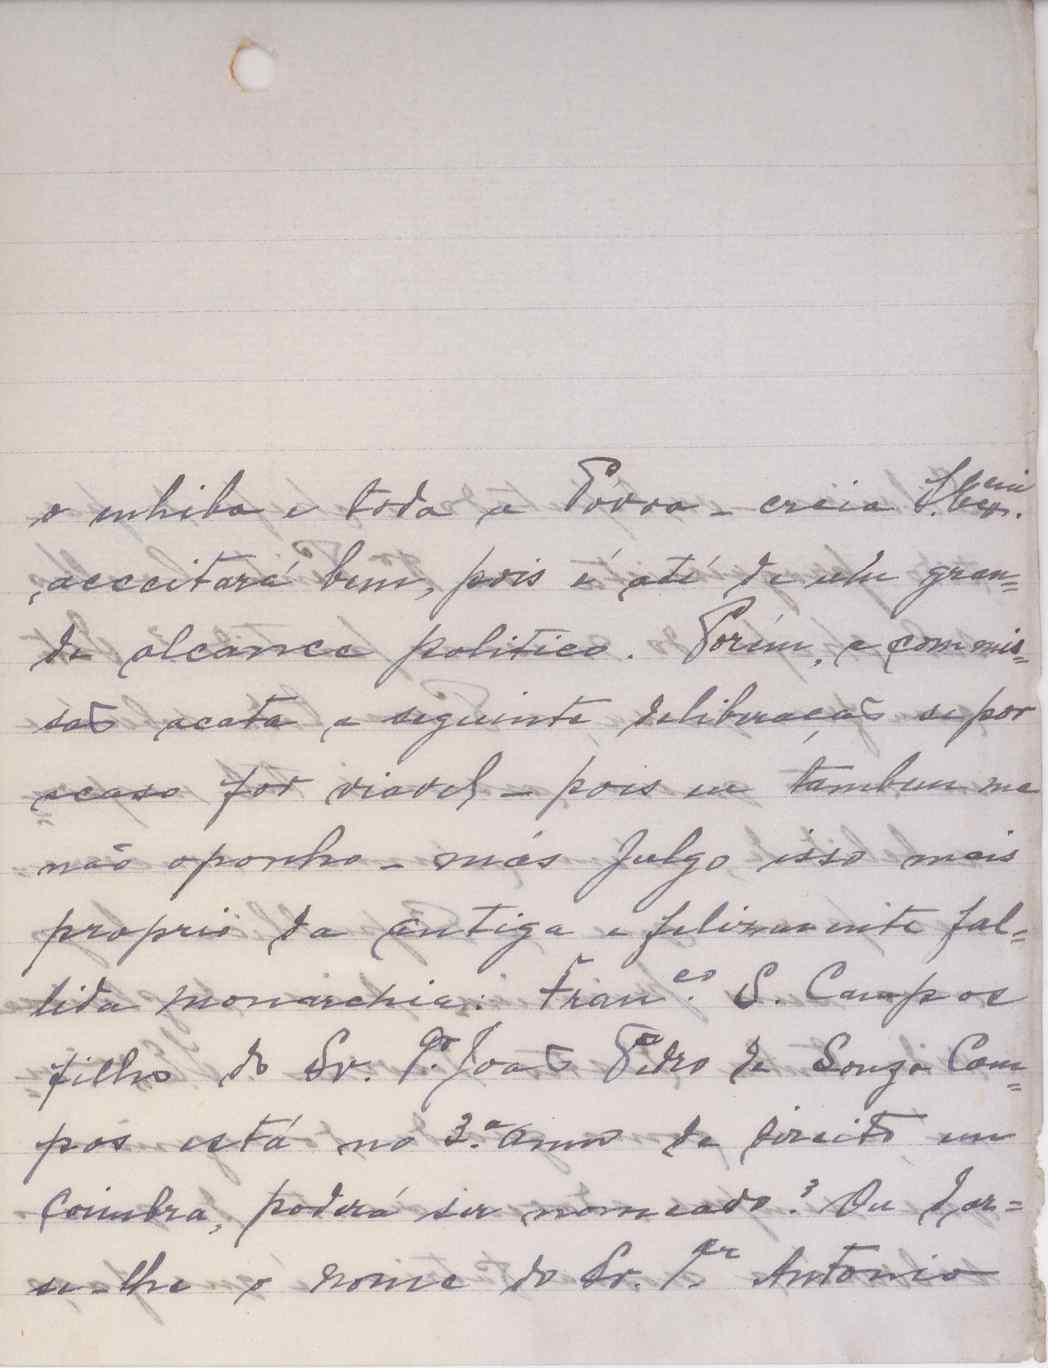 o inhiba e toda a Povoa - creia V. Ex.cia
acceitará bem, pois é até de um gran=
de alcance politico. Porém, a commis=
saõ acata a seguinte deliberaçaõ se por
acaso for viavel - pois eu tambem me
não oponho - más julgo isso mais
proprio da antiga e felizmente fal=
lida monarchia: Fran.co S. Campos
filho do Sr. Joaõ Pedro de Souza Cam=
pos está no 3.º anno de direito em
Coimbra, poderá ser nomeado? Ou dar=
se-lhe o nome do Sr. Antonio